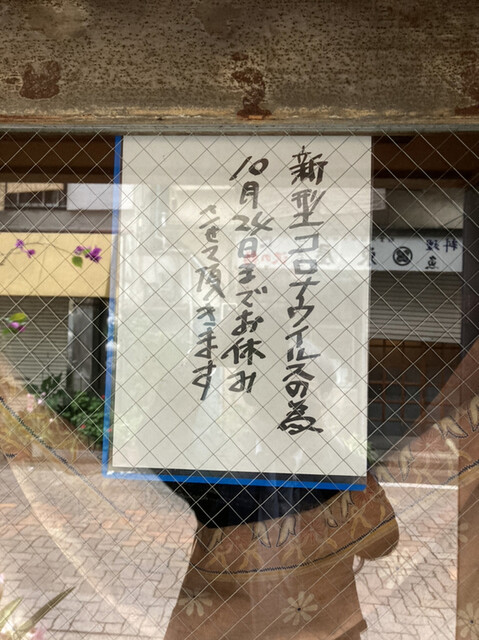 新型コロナウイルスの為
10月24日までお休み
させて頂くきます